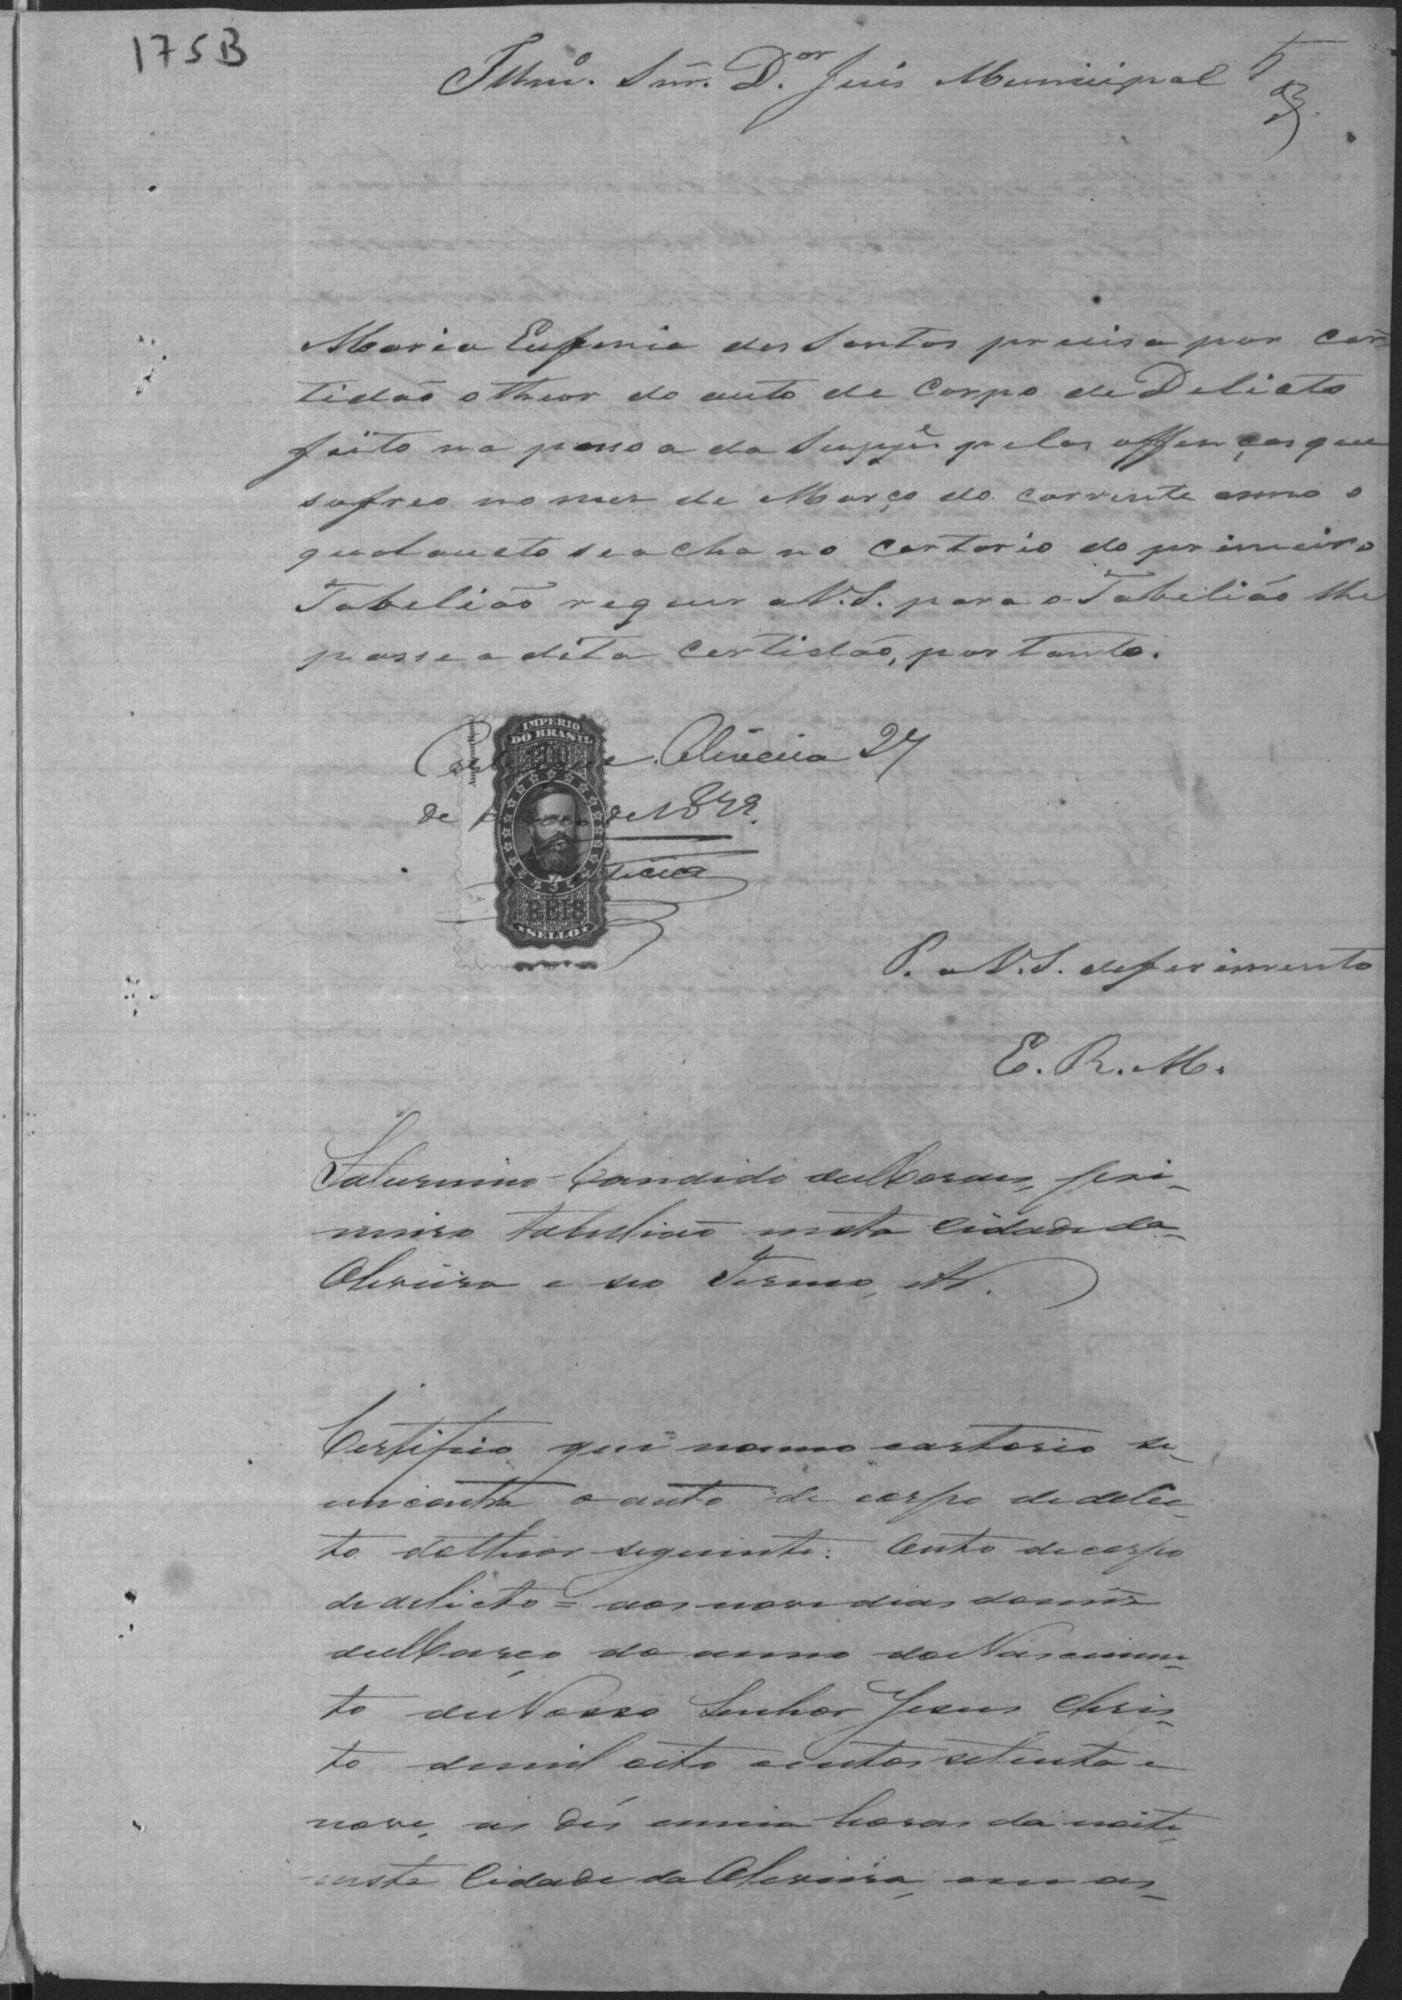 175B
Illmo. Snr. Dor. Juis Municipal
5
Maria Eufenia dos Santos precisa por cer-
tidão o theor do auto de Corpo de Delicto
feito na pessoa da Suppe. pelas offenças que
sofreo no mes de Março do corrente anno o
qual aucto se acha no Cartorio do primeiro
Tabelião requer a V.S. para o Tabelião lhe
passe a dita certidão, portanto.
Oliveira 27
de de 1879.
IMPERIO
DO BRASIL
REIS
SELLO
P. a V.S. deferimento
E. R. M.
Saturnino Candido de Moraes, pri-
meiro tabelliaõ nesta Cidade da
Oliveira e seo Termo, &.
Certifico que no meo cartorio se
encontra o auto de corpo de delic-
to do theor seguinte: Auto de corpo
de delicto = aos nove dias do mes
de Março do anno do Nascimen-
to de Nosso Senhor Jesus Chris-
to de mil oito centos setenta e
nove, as dés e meia horas da noite,
nesta Cidade da Oliveira, em as-